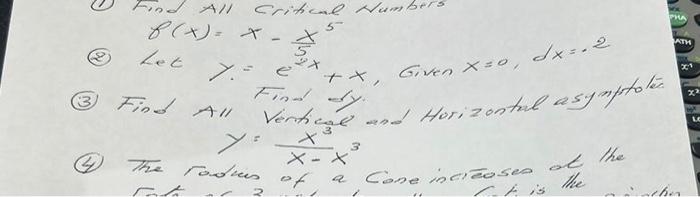 ① Find All Critical Numbers
f(x) = x - x^5/5
② Let y = e^2x + x, Given x=0, dx=.2
Find dy.
③ Find All Vertical and Horizontal asymptotes
y = x^3/(x - x^3)
④ The radius of a Cone increases at the
is the